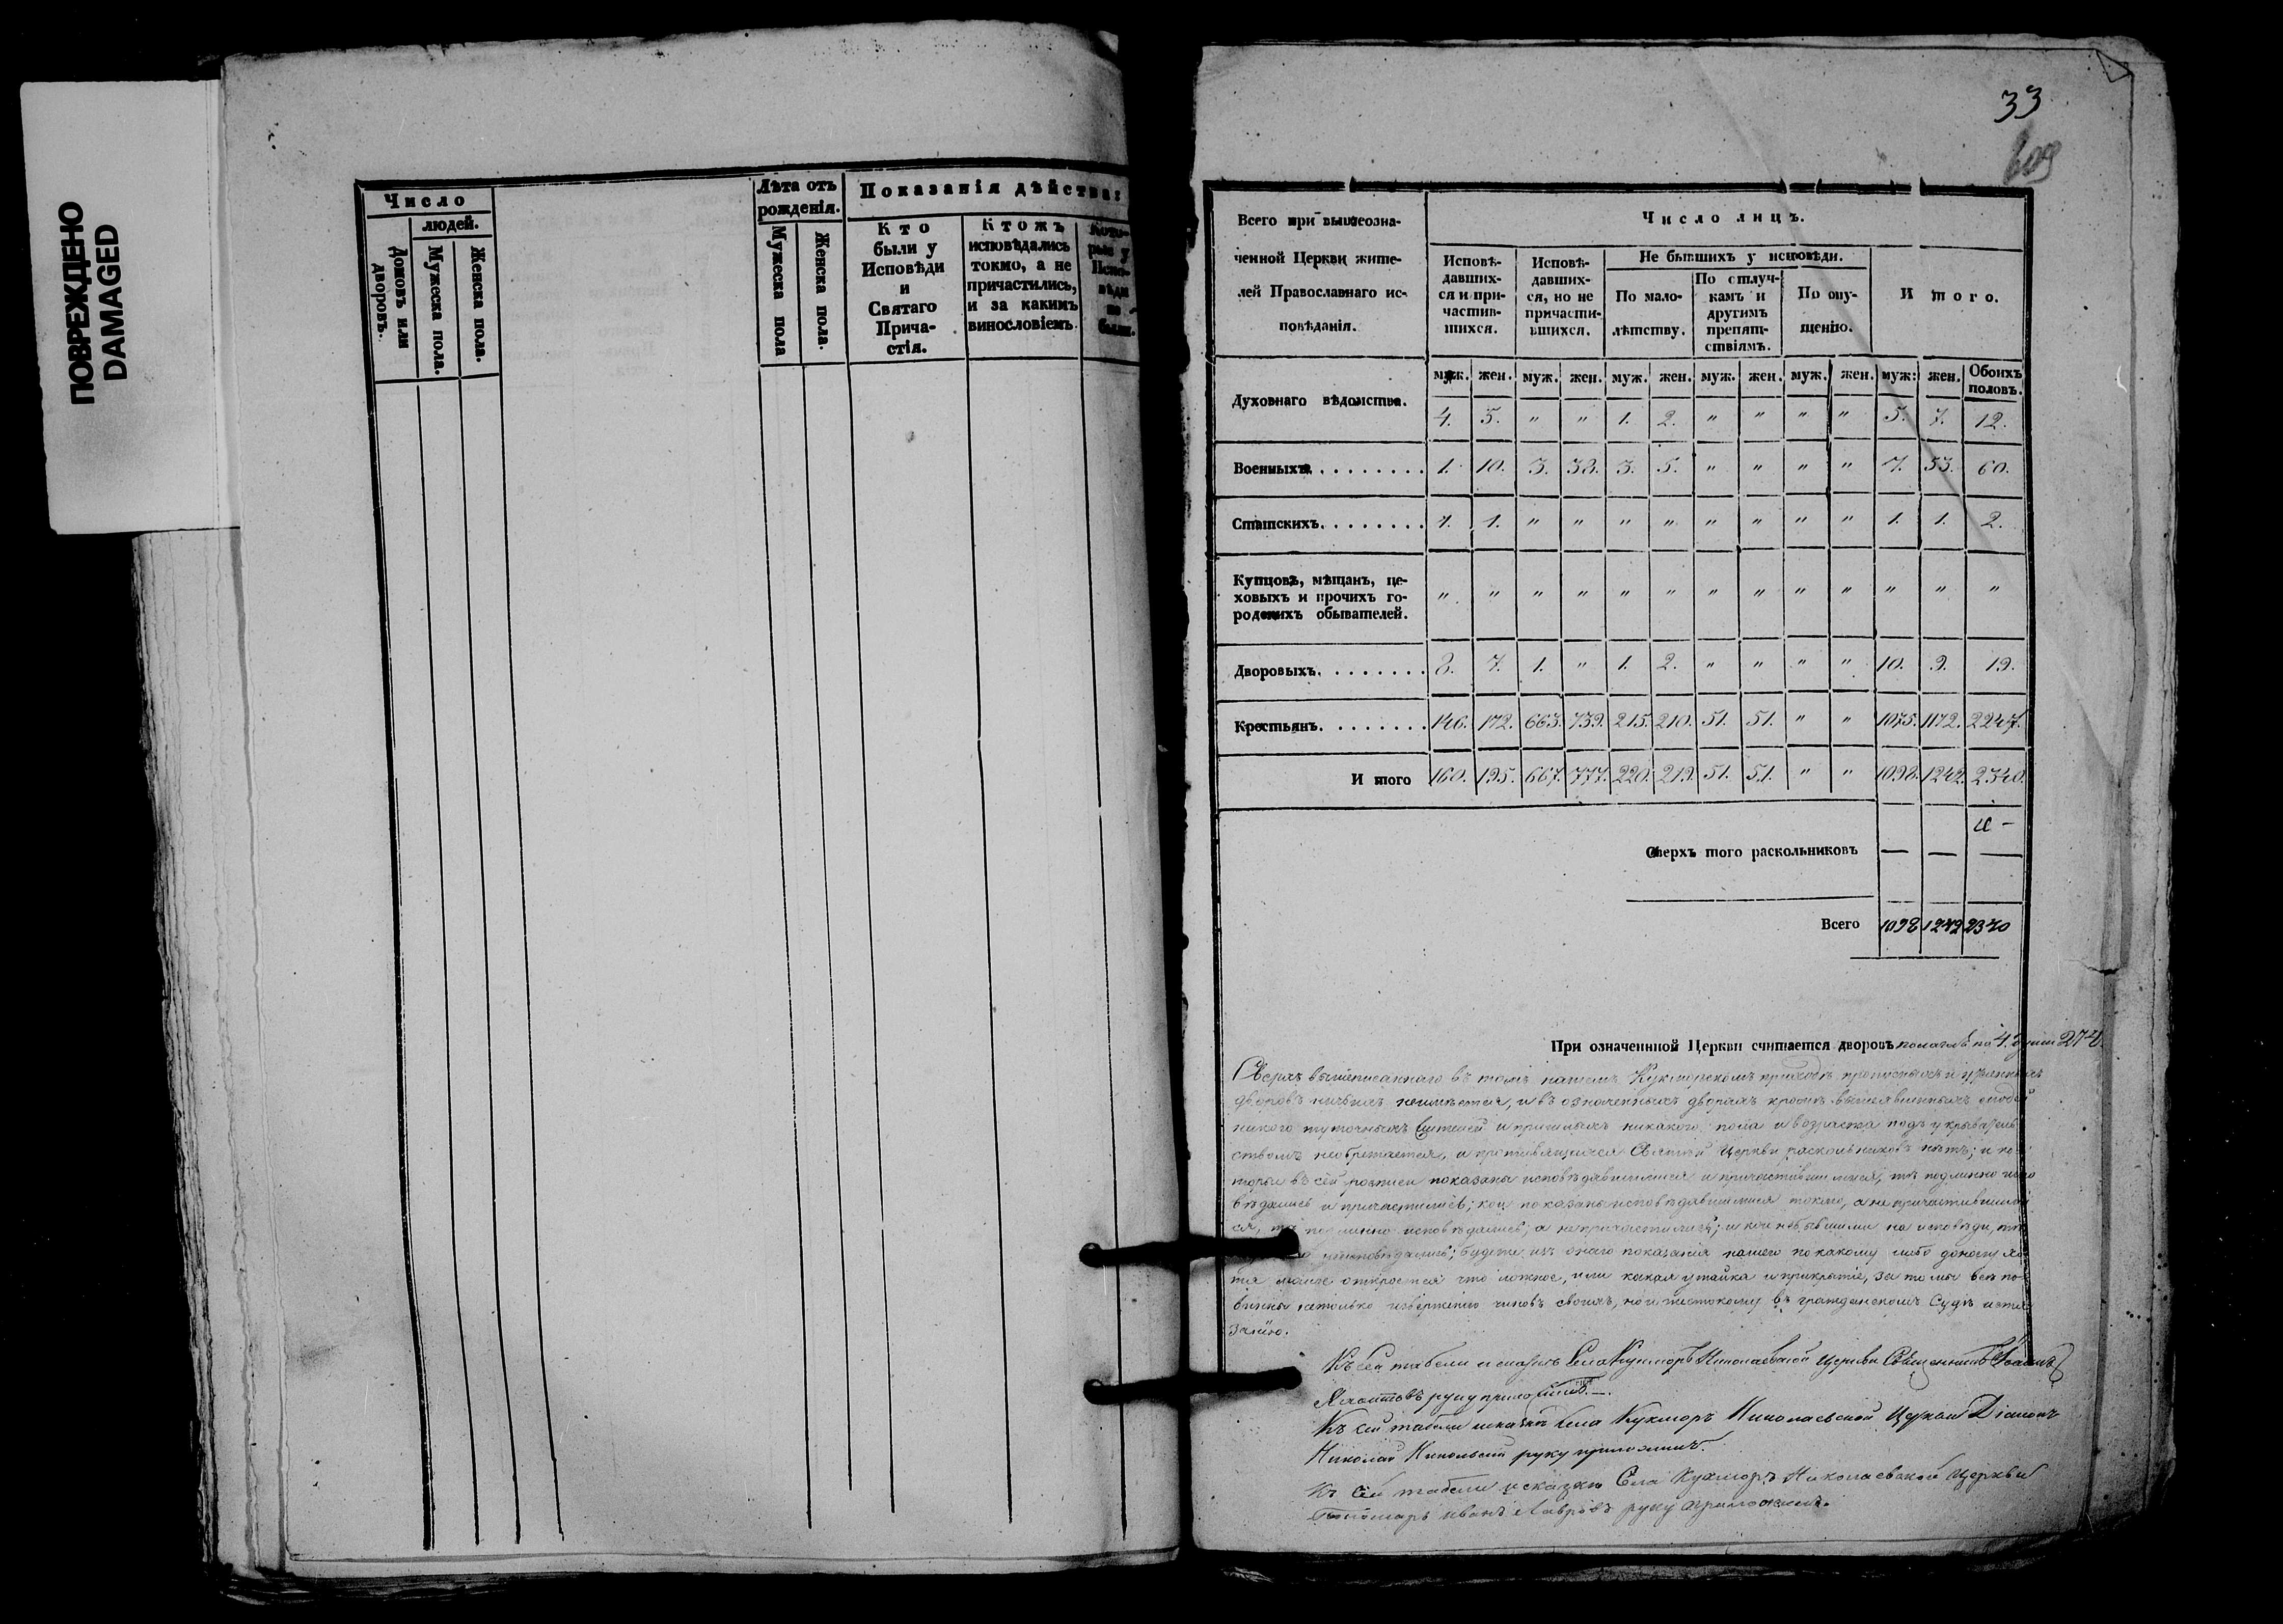 ПОВРЕЖДЕНО
DAMAGED
Число
людей.
Домовъ или
дворовъ.
Мужеска пола.
Женска пола.
Лѣта отъ
рожденія.
Мужеска пола
Женска пола.
Показанія дѣйства:
Кто
были у
Исповѣди
и
Святаго
Прича-
стія.
Ктожъ
исповѣдались
токмо, а не
причастились,
и за какимъ
винословіемъ.
Кото-
рые у
Испо-
вѣди
не
были.
33
609
Всего при вышеозна-
ченной Церкви жите-
лей Православнаго ис-
повѣданія.
Число лицъ.
Исповѣ-
давших-
ся и при-
частив-
шихся.
Исповѣ-
давших-
ся, но не
причасти-
вшихся.
Не бывшихъ у исповѣди.
По мало-
лѣтству.
По отлуч-
камъ и
другимъ
препят-
ствіямъ.
По опу-
щенію.
И того.
муж. жен. муж. жен. муж. жен. муж. жен. муж. жен. муж: жен. Обоихъ
половъ.
Духовнаго вѣдомства. 4. 5. " " 1. 2. " " " " 5. 7. 12.
Военныхъ. 1. 10. 3. 38. 3. 5. " " " " 7. 53. 60.
Статскихъ. 1. 1. " " " " " " " " 1. 1. 2.
Купцовъ, мѣщанъ, це-
ховыхъ и прочихъ го-
родскихъ обывателей. " " " " " " " " " " " " "
Дворовыхъ. 8. 7. 1. " 1. 2. " " " " 10. 9. 19.
Крестьянъ. 146. 172. 663. 739. 215. 210. 51. 51. " " 1075. 1172. 2247.
И того 160. 195. 667. 777. 220. 219. 51. 51. " " 1098. 1242. 2340.
Сверхъ того раскольниковъ — — —
Всего 1098 1242 2340
При означенной Церкви считается дворовъ полагая по 4. души 274
Сверхъ вышеписаннаго въ томъ нашемъ Кукморскомъ приходѣ прописныхъ и утаенныхъ
дворовъ ничьихъ неимѣется, и въ означенныхъ дворахъ кромѣ вышеявленныхъ людей
никого туточныхъ жителей и пришлыхъ никакого пола и возраста подъ укрыватель
ствомъ необрѣтается, и противящихся Святой Церкви раскольниковъ нѣтъ; и ко
торые въ сей росписи показаны исповѣдавшимися и причастившимися, тѣ подлинно испо
вѣдались и причастились; кои показаны исповѣдавшимися токмо, а не причастившими
ся, тѣ подлинно исповѣдались, а не причастились; и кои небывшими на исповѣди, тѣ
неисповѣдались; будеже изъ онаго показанія нашего по какому либо доносу хо
тя малое откроется что ложное, или какая утайка и прикрытіе, за то мы всѣ по
винны нетолько изверженію чиновъ своихъ, но и жестокому въ гражданскомъ Судѣ истя
занію.
Къ сей табели и сказкѣ Села Кукморъ Николаевской церкви Священникъ Іоаннъ
руку приложилъ.
Къ сей табели и сказкѣ села Кукморъ Николаевской Церкви Діаконъ
Николай Никольскій руку приложилъ.
Къ сей табели и сказки Села Кукморъ Николаевской Церкви
Пономарь Иванъ Лавровъ руку приложилъ.